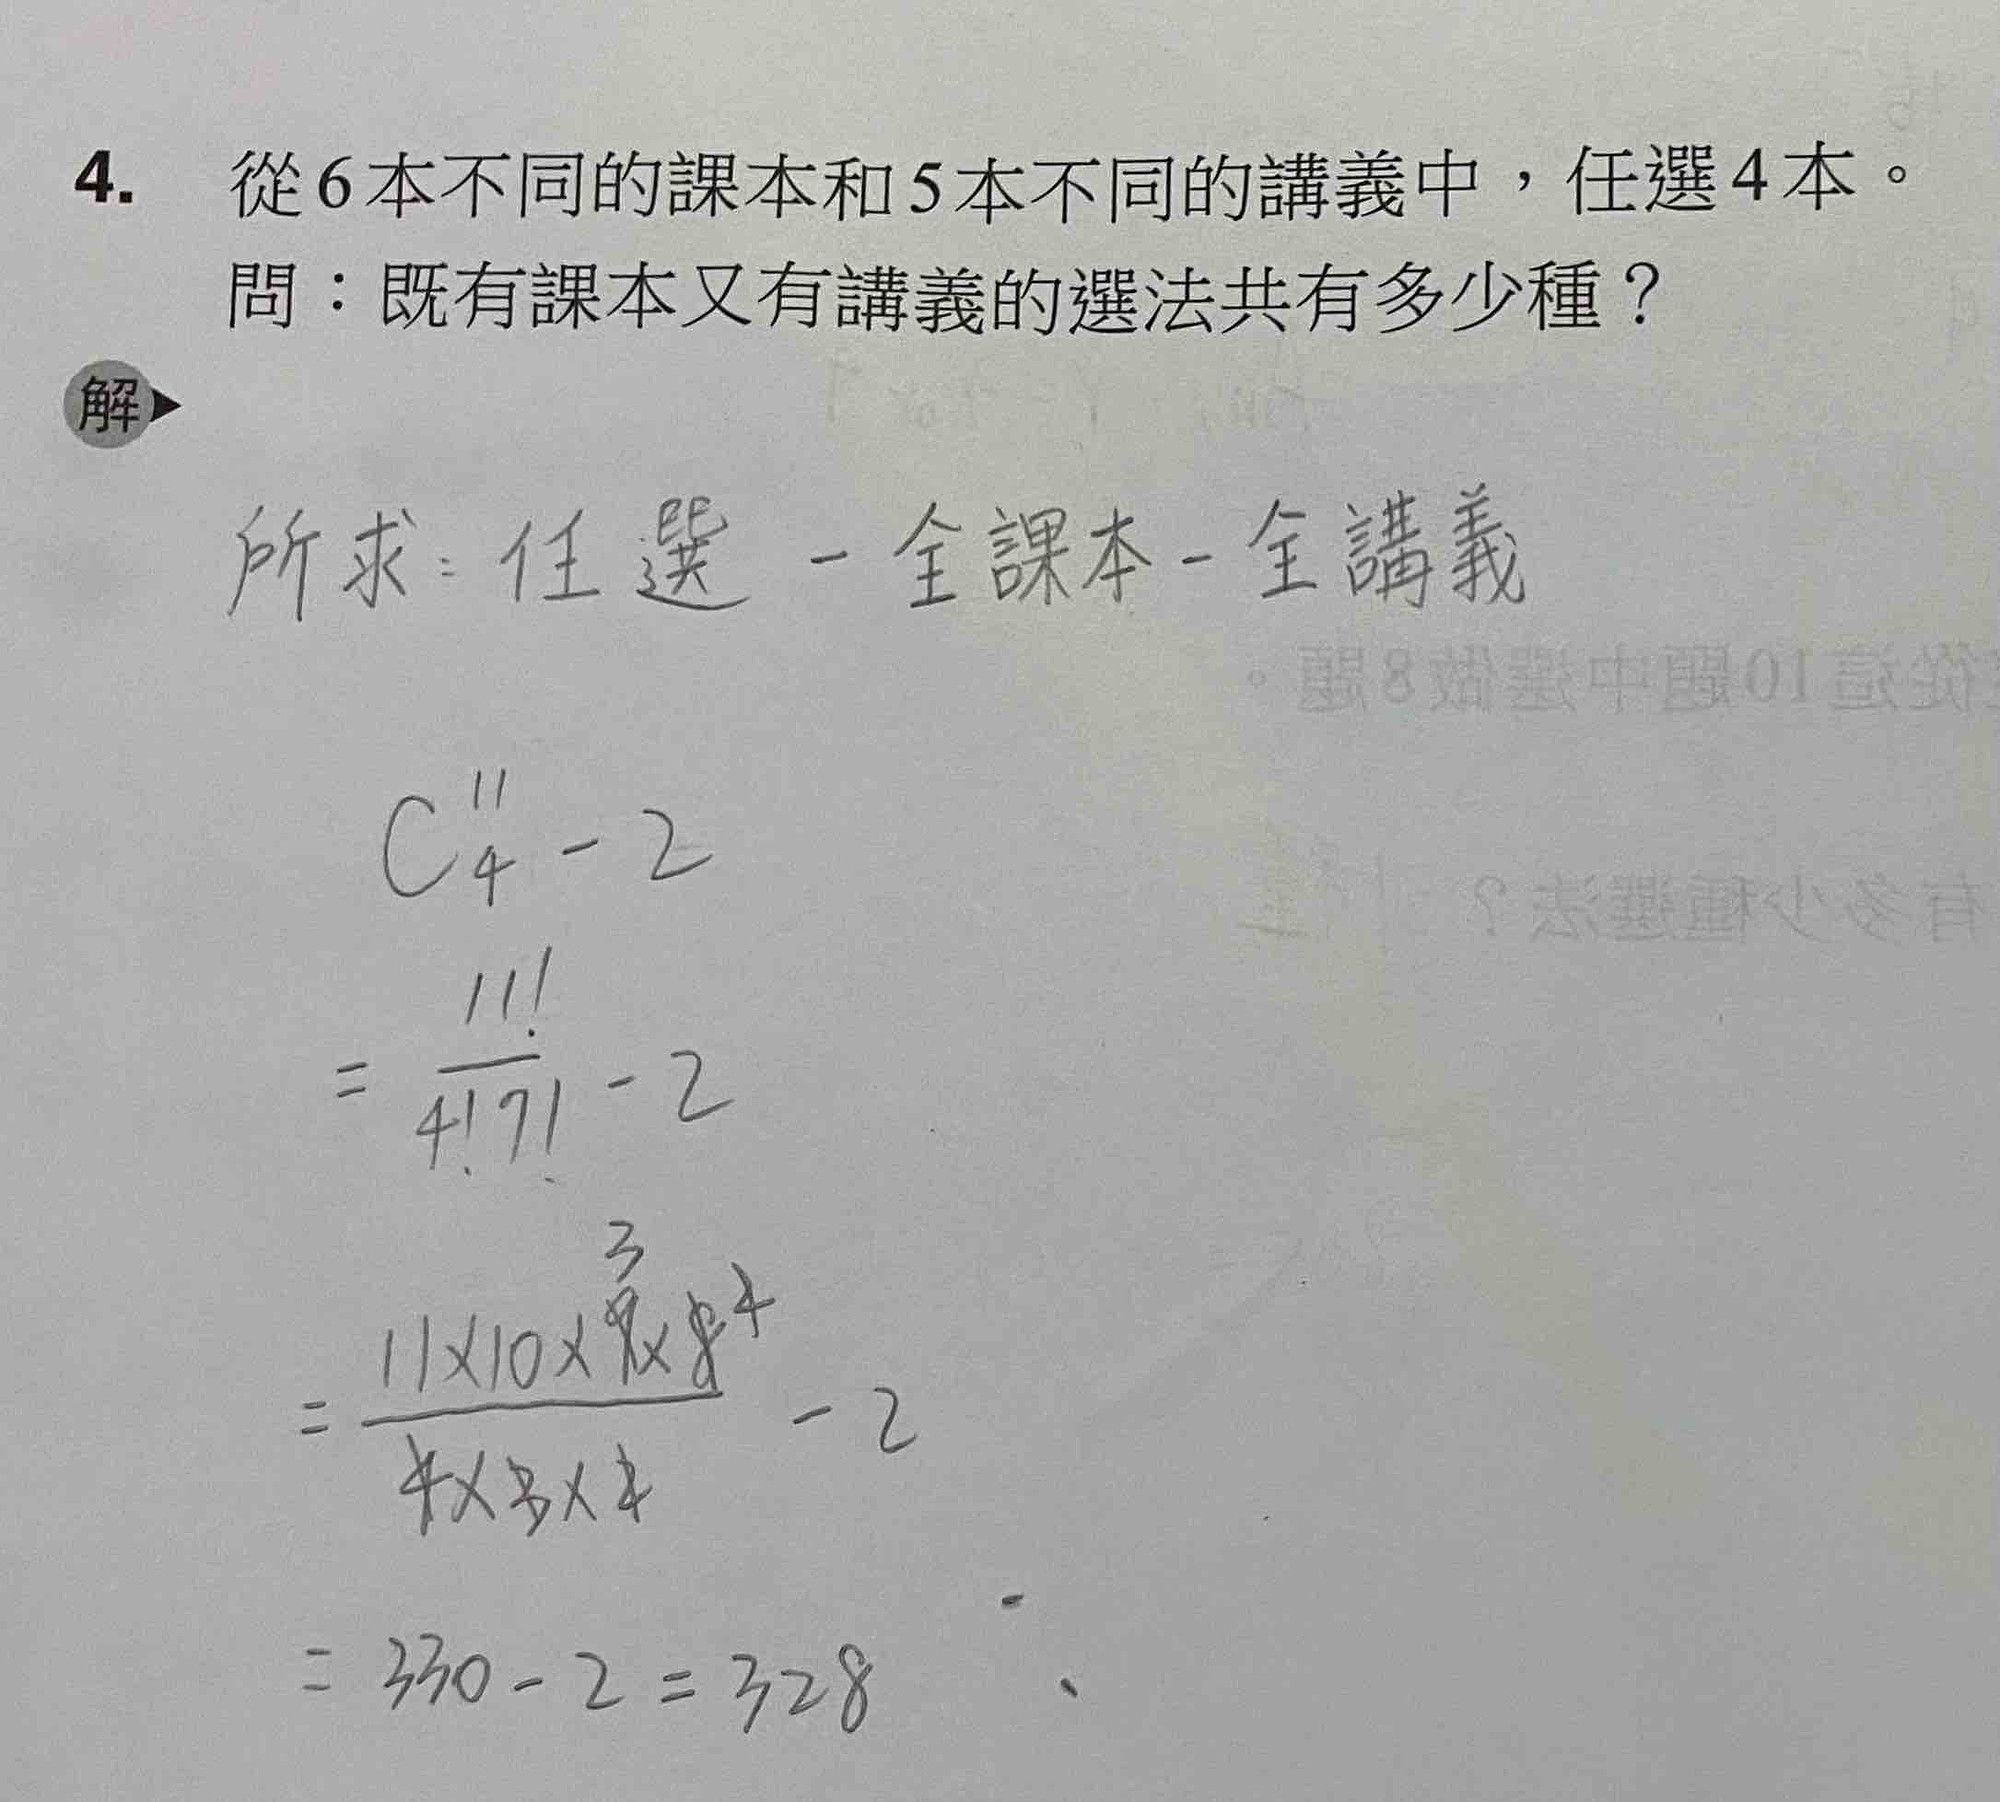 4. 從6本不同的課本和5本不同的講義中，任選4本。
問：既有課本又有講義的選法共有多少種？
解
所求：任選 - 全課本 - 全講義
從這10題中選做8題。
C¹¹₄ - 2
有多少種選法？
= 11!/4!7! - 2
= 11×10×9×8/4×3×2 - 2
3 4
= 330 - 2 = 328